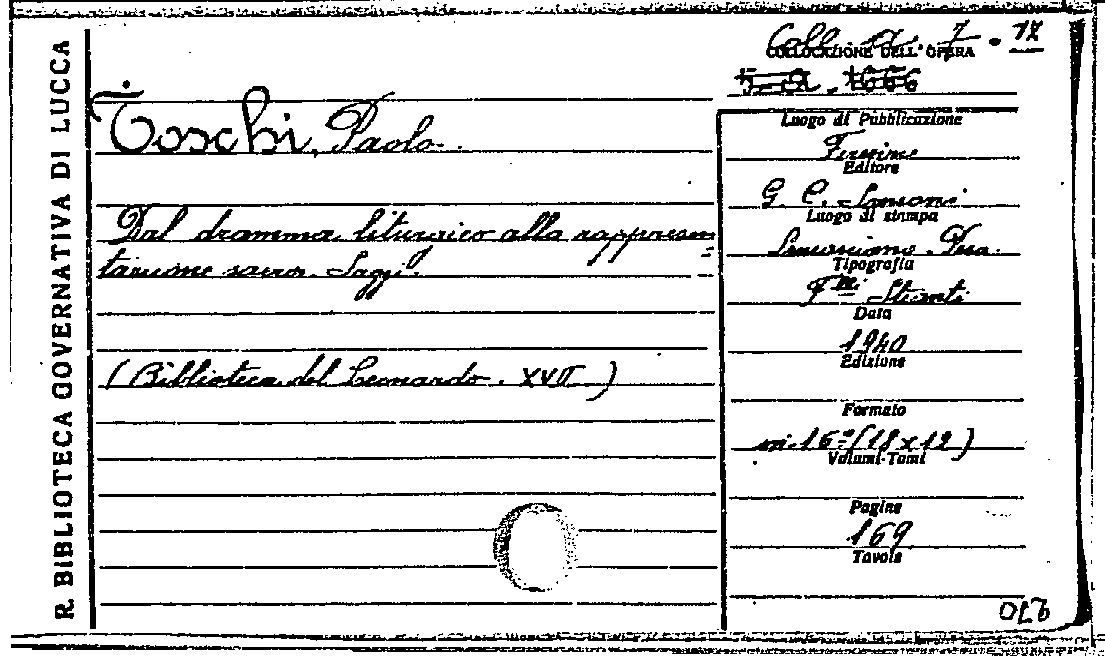 R. BIBLIOTECA GOVERNATIVA DI LUCCA
Coll. 7 • 12
COLLOCAZIONE DELL'OPERA
Toschi, Paolo.
Dal dramma liturgico alla rappresen
tazione sacra. Saggi.
(Biblioteca del Leonardo. XVII)
Luogo di Pubblicazione
Firenze
Editore
G. C. Sansoni
Luogo di stampa
Tipografia
F.lli Stianti
Data
1940
Edizione
Formato
in-16° (18 x 12)
Volumi-Tomi
Pagine
169
Tavole